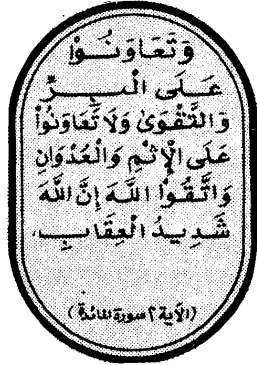 وَتَعَاوَنُوا
عَلَى الْبِرِّ
وَالتَّقْوَىٰ وَلَا تَعَاوَنُوا
عَلَى الْإِثْمِ وَالْعُدْوَانِ
وَاتَّقُوا اللَّهَ إِنَّ اللَّهَ
شَدِيدُ الْعِقَابِ.
(الآية ٢ سورة المائدة)